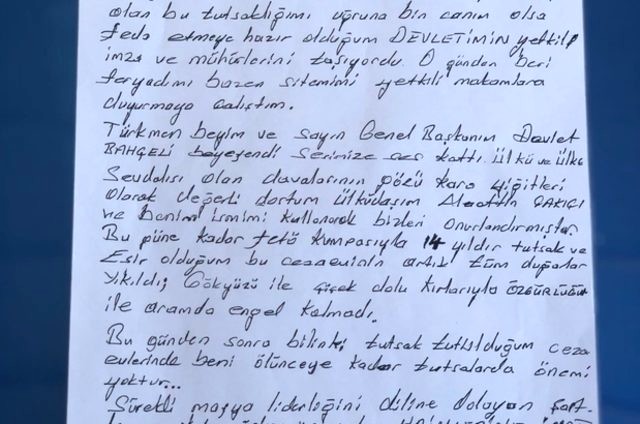 olan bu tutsaklığımı uğruna bin canım olsa
feda etmeye hazır olduğum DEVLETİMİN yetkili
imza ve mühürlerini taşıyordu. O günden beri
feryadımı bazen sitemimi yetkili makamlara
duyurmaya çalıştım.
Türkmen beyim ve sayın Genel Başkanım Devlet
BAHÇELİ beyefendi sesimize ses kattı. Ülkü ve Ülke
Sevdalısı olan davalarının gözü kara yiğitleri
olarak değerli dostum Ülküdaşım Alaattin ÇAKICI
ve benim ismimi kullanarak bizleri onurlandırmıştır
Bu güne kadar fetö kumpasıyla 14 yıldır tutsak ve
Esir olduğum bu cezaevinin artık tüm duvarları
Yıkıldı; Gökyüzü ile çiçek dolu kırlarıyla ÖZGÜRLÜĞÜM
ile aramda engel kalmadı.
Bu günden sonra bilinki; tutsak tutulduğum ceza
evlerinde beni ölünceye kadar tutsalarda önemi
yoktur...
Sürekli mafya liderliğini diline dolayan